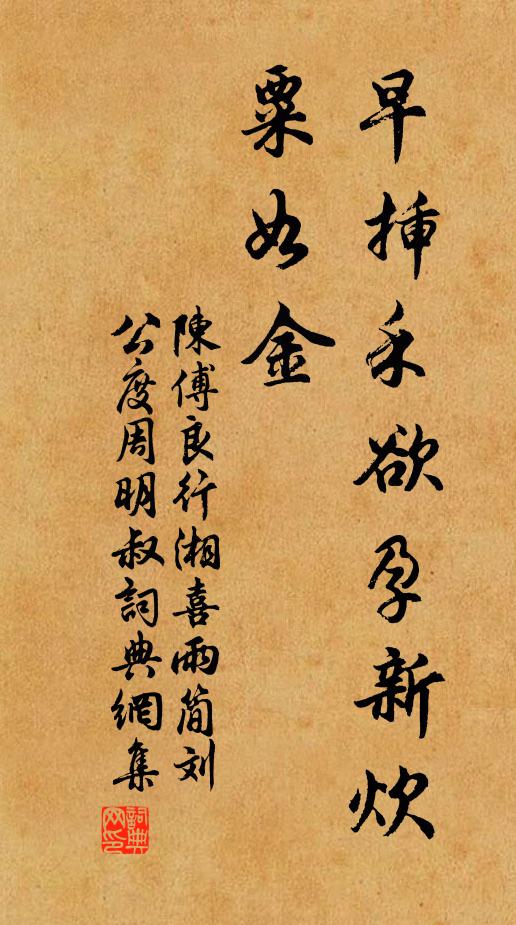 早挿禾欲孕新炊
粟如金
陳傅良行湘喜雨簡刘
公度周明叔詞典網集
詞典网印